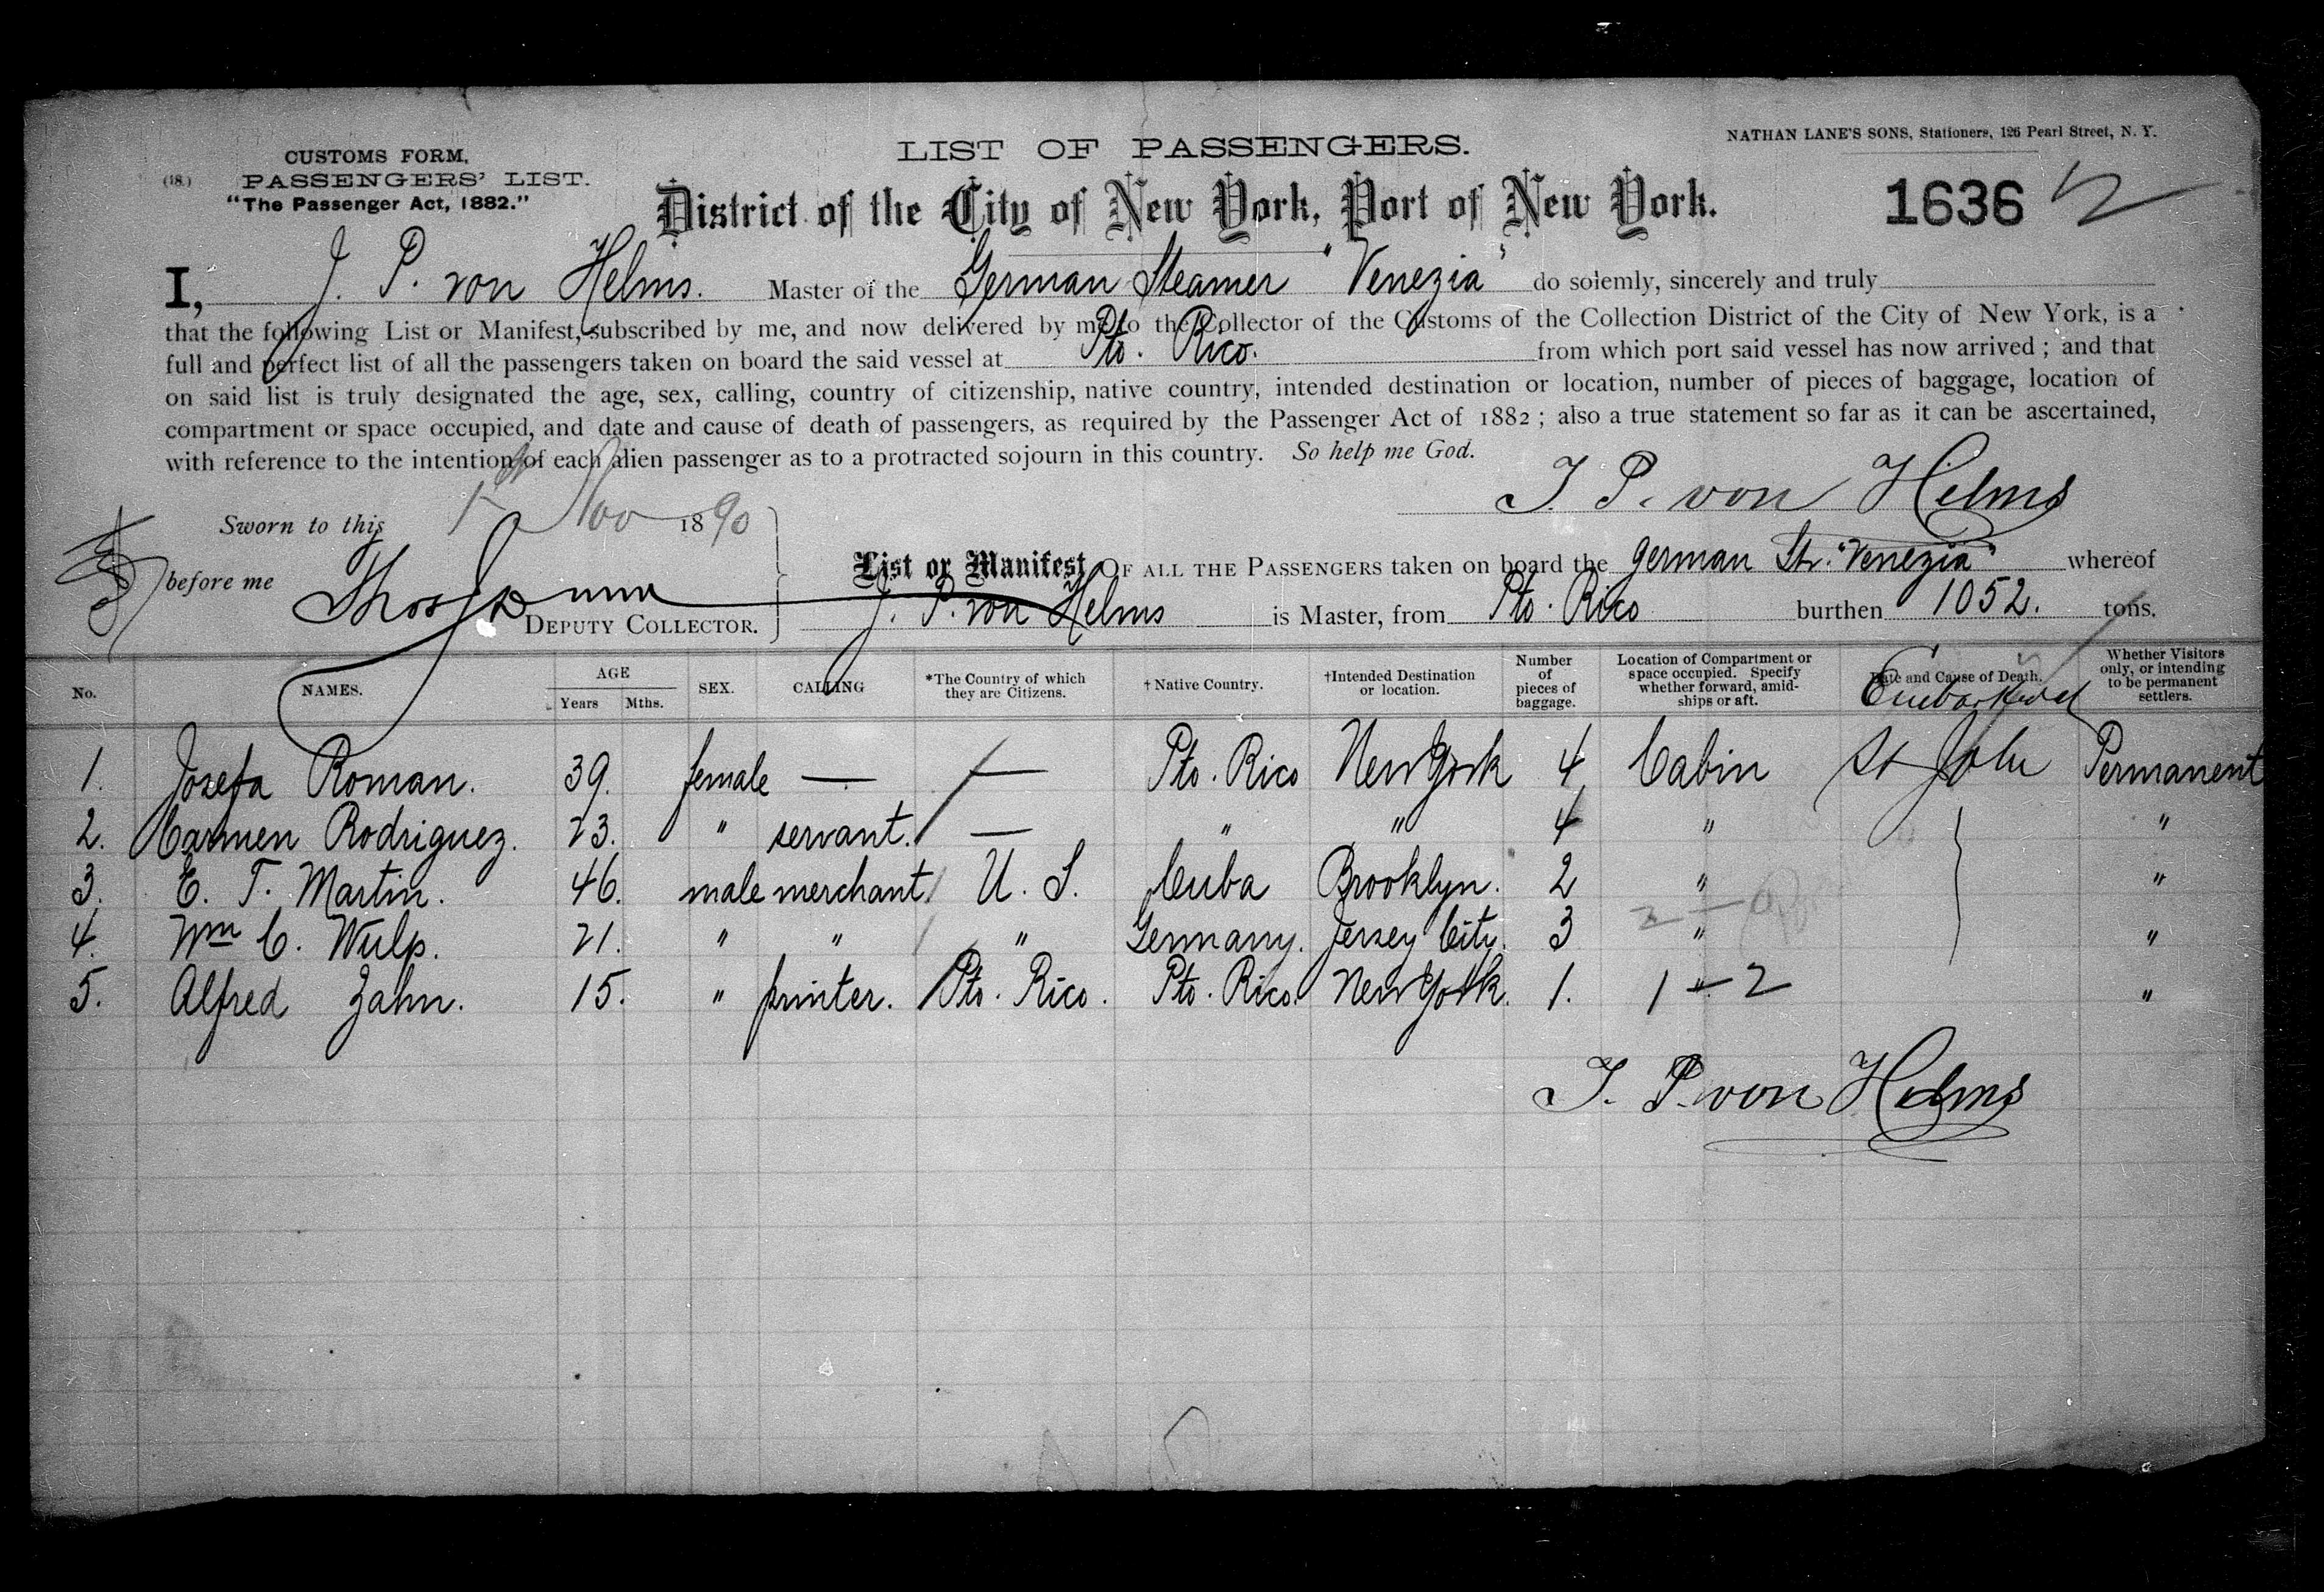 LIST OF PASSENGERS.
NATHAN LANE'S SONS, Stationers, 126 Pearl Street, N. Y.
CUSTOMS FORM,
(18.) PASSENGERS' LIST.
"The Passenger Act, 1882."
District of the City of New York, Port of New York.
1636
I, J. P. von Helms. Master of the German Steamer "Venezia" do solemly, sincerely and truly
that the following List or Manifest, subscribed by me, and now delivered by me to the Collector of the Customs of the Collection District of the City of New York, is a
full and perfect list of all the passengers taken on board the said vessel at Pto. Rico. from which port said vessel has now arrived ; and that
on said list is truly designated the age, sex, calling, country of citizenship, native country, intended destination or location, number of pieces of baggage, location of
compartment or space occupied, and date and cause of death of passengers, as required by the Passenger Act of 1882 ; also a true statement so far as it can be ascertained,
with reference to the intention of each alien passenger as to a protracted sojourn in this country. So help me God.
J. P. von Helms
Sworn to this 1st Nov 1890
before me Thos
DEPUTY COLLECTOR.
List or Manifest OF ALL THE PASSENGERS taken on board the German Str. "Venezia" whereof
J. P. von Helms is Master, from Pto. Rico burthen 1052. tons.
No. NAMES. AGE Years Mths. SEX. CALLING *The Country of which they are Citizens. † Native Country. †Intended Destination or location. Number of pieces of baggage. Location of Compartment or space occupied. Specify whether forward, amid-ships or aft. Date and Cause of Death. Embarked Whether Visitors only, or intending to be permanent settlers.
1. Josefa Roman. 39. female — — Pto. Rico New York 4 Cabin St John Permanent
2. Carmen Rodriguez. 23. " servant. — " " 4 " "
3. E. T. Martin. 46. male merchant. U. S. Cuba Brooklyn. 2 " "
4. Wm C. Wulp. 21. " " " Germany. Jersey City. 3 " "
5. Alfred Zahn. 15. " printer. Pto. Rico. Pto. Rico. New York. 1. " 1 - 2 "
J. P. von Helms